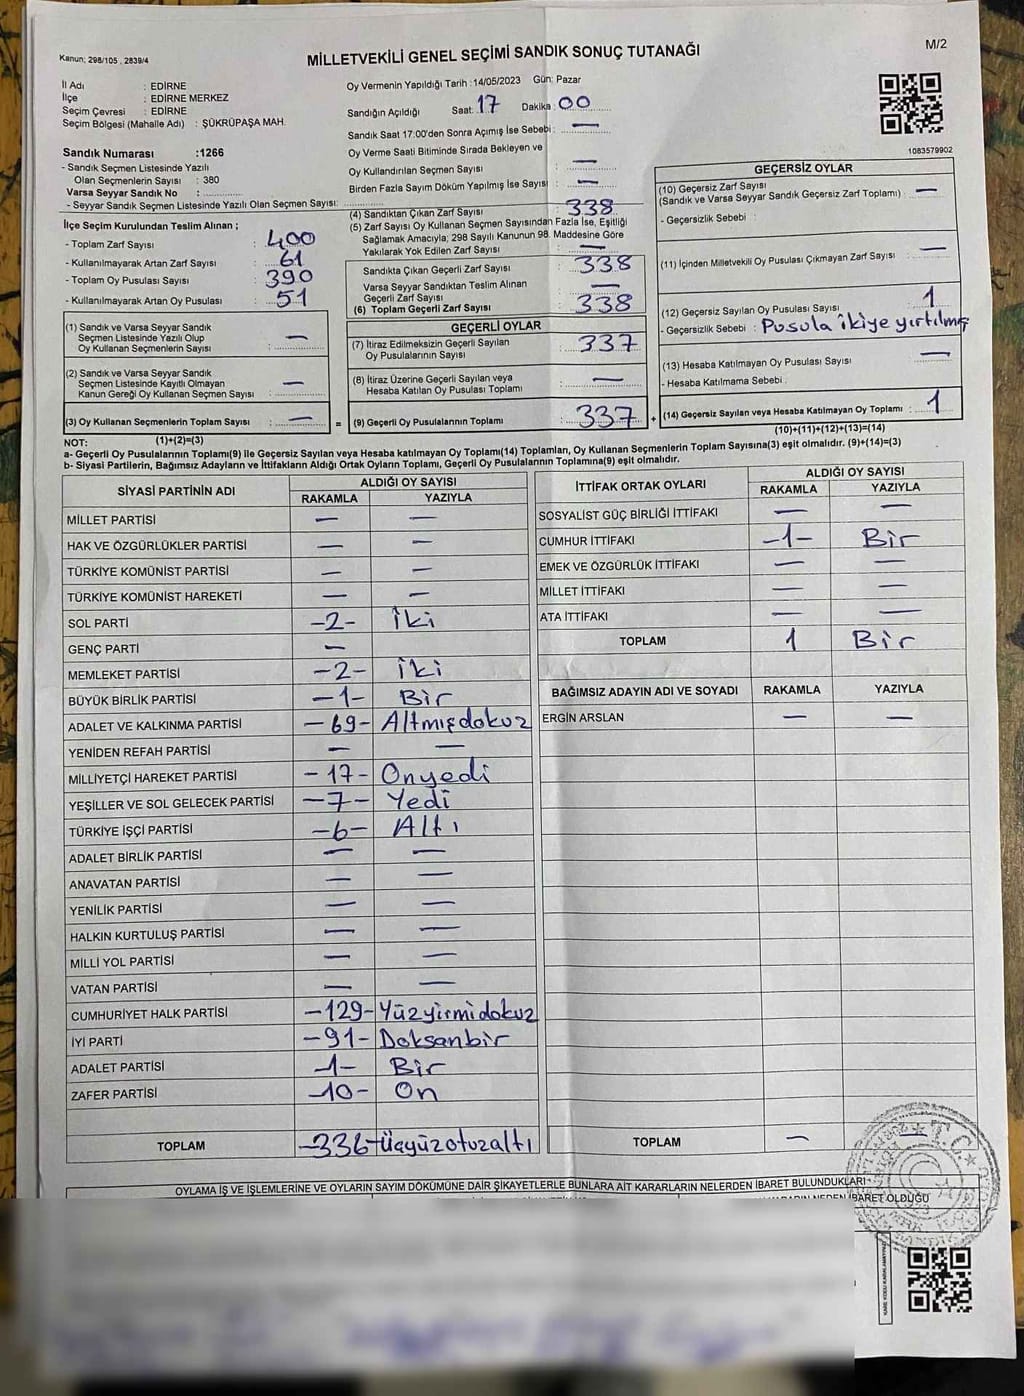 Kanun; 298/105 , 2839/4
MİLLETVEKİLİ GENEL SEÇİMİ SANDIK SONUÇ TUTANAĞI
M/2
İl Adı : EDİRNE
İlçe : EDİRNE MERKEZ
Seçim Çevresi : EDİRNE
Seçim Bölgesi (Mahalle Adı) : ŞÜKRÜPAŞA MAH.
Oy Vermenin Yapıldığı Tarih : 14/05/2023 Gün: Pazar
Sandığın Açıldığı Saat: 17 Dakika : 00
Sandık Saat 17:00'den Sonra Açımış İse Sebebi : —
Oy Verme Saati Bitiminde Sırada Bekleyen ve
Oy Kullandırılan Seçmen Sayısı : —
Birden Fazla Sayım Döküm Yapılmış İse Sayısı : —
1083579902
Sandık Numarası :1266
- Sandık Seçmen Listesinde Yazılı
Olan Seçmenlerin Sayısı : 380
Varsa Seyyar Sandık No :
- Seyyar Sandık Seçmen Listesinde Yazılı Olan Seçmen Sayısı:
İlçe Seçim Kurulundan Teslim Alınan ;
- Toplam Zarf Sayısı : 400
- Kullanılmayarak Artan Zarf Sayısı : 61
- Toplam Oy Pusulası Sayısı : 390
- Kullanılmayarak Artan Oy Pusulası : 51
(1) Sandık ve Varsa Seyyar Sandık
Seçmen Listesinde Yazılı Olup
Oy Kullanan Seçmenlerin Sayısı : —
(2) Sandık ve Varsa Seyyar Sandık
Seçmen Listesinde Kayıtlı Olmayan
Kanun Gereği Oy Kullanan Seçmen Sayısı : —
(3) Oy Kullanan Seçmenlerin Toplam Sayısı : —
(4) Sandıktan Çıkan Zarf Sayısı : 338
(5) Zarf Sayısı Oy Kullanan Seçmen Sayısından Fazla İse, Eşitliği
Sağlamak Amacıyla; 298 Sayılı Kanunun 98. Maddesine Göre
Yakılarak Yok Edilen Zarf Sayısı : —
Sandıkta Çıkan Geçerli Zarf Sayısı : 338
Varsa Seyyar Sandıktan Teslim Alınan
Geçerli Zarf Sayısı : —
(6) Toplam Geçerli Zarf Sayısı : 338
GEÇERLİ OYLAR
(7) İtiraz Edilmeksizin Geçerli Sayılan
Oy Pusulalarının Sayısı : 337
(8) İtiraz Üzerine Geçerli Sayılan veya
Hesaba Katılan Oy Pusulası Toplamı : —
= (9) Geçerli Oy Pusulalarının Toplamı : 337 +
GEÇERSİZ OYLAR
(10) Geçersiz Zarf Sayısı
(Sandık ve Varsa Seyyar Sandık Geçersiz Zarf Toplamı) : —
- Geçersizlik Sebebi :
(11) İçinden Milletvekili Oy Pusulası Çıkmayan Zarf Sayısı : —
(12) Geçersiz Sayılan Oy Pusulası Sayısı : 1
- Geçersizlik Sebebi : Pusula ikiye yırtılmış
(13) Hesaba Katılmayan Oy Pusulası Sayısı : —
- Hesaba Katılmama Sebebi :
(14) Geçersiz Sayılan veya Hesaba Katılmayan Oy Toplamı : 1
(10)+(11)+(12)+(13)=(14)
NOT: (1)+(2)=(3)
a- Geçerli Oy Pusulalarının Toplamı(9) ile Geçersiz Sayılan veya Hesaba katılmayan Oy Toplamı(14) Toplamları, Oy Kullanan Seçmenlerin Toplam Sayısına(3) eşit olmalıdır. (9)+(14)=(3)
b- Siyasi Partilerin, Bağımsız Adayların ve İttifakların Aldığı Ortak Oyların Toplamı, Geçerli Oy Pusulalarının Toplamına(9) eşit olmalıdır.
SİYASİ PARTİNİN ADI ALDIĞI OY SAYISI
RAKAMLA YAZIYLA
MİLLET PARTİSİ — —
HAK VE ÖZGÜRLÜKLER PARTİSİ — —
TÜRKİYE KOMÜNİST PARTİSİ — —
TÜRKİYE KOMÜNİST HAREKETİ — —
SOL PARTİ -2- İki
GENÇ PARTİ —
MEMLEKET PARTİSİ -2- İki
BÜYÜK BİRLİK PARTİSİ -1- Bir
ADALET VE KALKINMA PARTİSİ -69- Altmışdokuz
YENİDEN REFAH PARTİSİ — —
MİLLİYETÇİ HAREKET PARTİSİ -17- Onyedi
YEŞİLLER VE SOL GELECEK PARTİSİ -7- Yedi
TÜRKİYE İŞÇİ PARTİSİ -6- Altı
ADALET BİRLİK PARTİSİ — —
ANAVATAN PARTİSİ — —
YENİLİK PARTİSİ — —
HALKIN KURTULUŞ PARTİSİ — —
MİLLİ YOL PARTİSİ — —
VATAN PARTİSİ — —
CUMHURİYET HALK PARTİSİ -129- Yüzyirmidokuz
İYİ PARTİ -91- Doksanbir
ADALET PARTİSİ -1- Bir
ZAFER PARTİSİ -10- On
TOPLAM -336- Üçyüzotuzaltı
İTTİFAK ORTAK OYLARI ALDIĞI OY SAYISI
RAKAMLA YAZIYLA
SOSYALİST GÜÇ BİRLİĞİ İTTİFAKI — —
CUMHUR İTTİFAKI -1- Bir
EMEK VE ÖZGÜRLÜK İTTİFAKI — —
MİLLET İTTİFAKI — —
ATA İTTİFAKI — —
TOPLAM 1 Bir
BAĞIMSIZ ADAYIN ADI VE SOYADI RAKAMLA YAZIYLA
ERGİN ARSLAN — —
TOPLAM — —
OYLAMA İŞ VE İŞLEMLERİNE VE OYLARIN SAYIM DÖKÜMÜNE DAİR ŞİKAYETLERLE BUNLARA AİT KARARLARIN NELERDEN İBARET BULUNDUKLARI
NEDEN İBARET OLDUĞU
T.C.